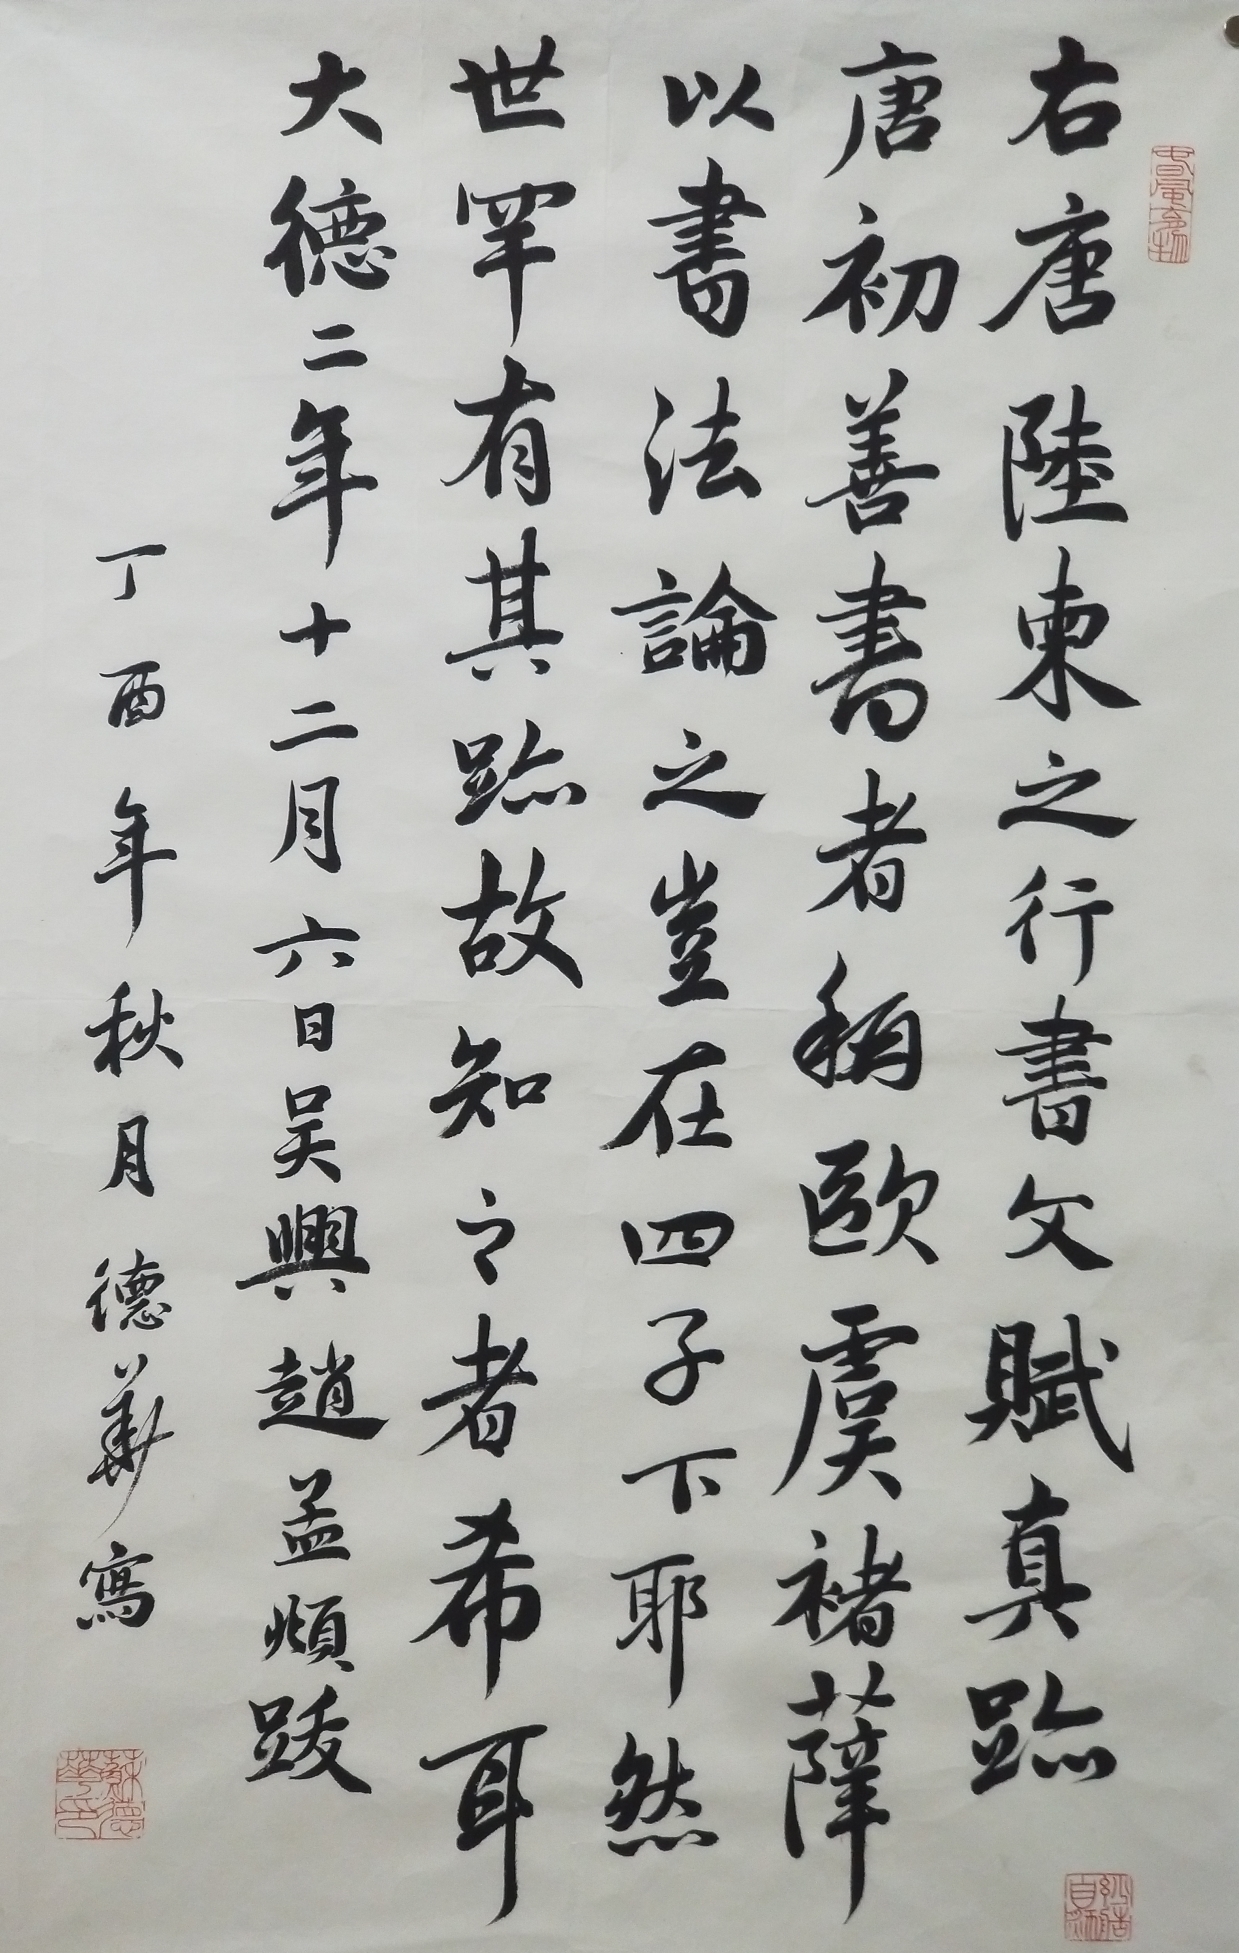 右唐陸柬之行書文賦真跡
唐初善書者稱歐虞褚薛
以書法論之豈在四子下耶然
世罕有其跡故知之者希耳
大德二年十二月六日吳興趙孟頫跋
丁酉年秋月德華寫
蘇德華印